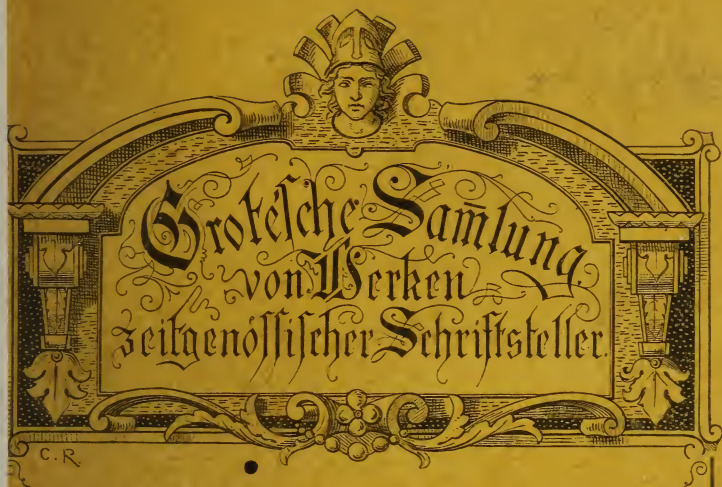 Grote'sche Sam̄lung
von Werken
zeitgenössischer Schriftsteller.
C.R.